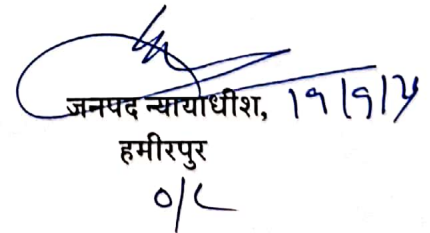 जनपद न्यायाधीश, 19/9/24
हमीरपुर
o/c